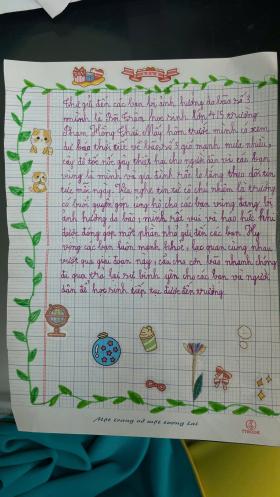 Thư gửi đến các bạn bị ảnh hưởng do bão số 3
mình là Bảo Trân, học sinh lớp 4/5 trường
Phạm Hồng Thái. Mấy hôm trước mình có xem
dự báo thời tiết về bão số 3 gió mạnh mưa nhiều,
cây đổ tốc nốc gây thiệt hại cho người dân và các bạn
vùng lũ mình và gia đình rất lo lắng theo dõi tin
tức mỗi ngày. Khi nghe tin từ cô chủ nhiệm là trường
có buổi quyên góp ủng hộ cho các bạn vùng đang bị
ảnh hưởng do bão, mình rất vui và háo hức khi
được đóng góp một phần nhỏ gửi đến các bạn. Hy
vọng các bạn luôn mạnh khoẻ, lạc quan cùng nhau
vượt qua giai đoạn này, cầu cho cơn bão nhanh chóng
đi qua trả lại sự bình yên cho các bạn và người
dân để học sinh tiếp tục được đến trường.
Một trang vở một tương lai